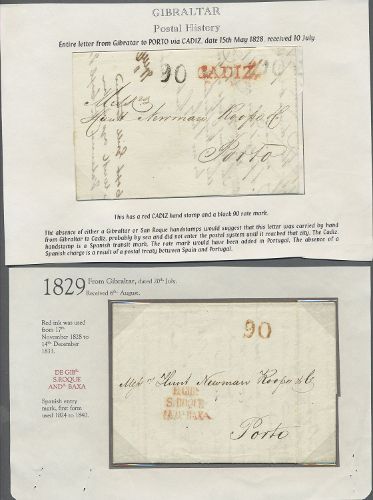 GIBRALTAR
Postal History
Entire letter from Gibraltar to PORTO via CADIZ, date 15th May 1828, received 10 July
90 CADIZ.
Mess rs
Hunt Newman Roope & Co
Porto
This has a red CADIZ hand stamp and a black 90 rate mark.
The absence of either a Gibraltar or San Roque handstamps would suggest that this letter was carried by hand
from Gibraltar to Cadiz, probably by sea and did not enter the postal system until it reached that city. The Cadiz
handstamp is a Spanish transit mark. The rate mark would have been added in Portugal. The absence of a
Spanish charge is a result of a postal treaty between Spain and Portugal.
1829 From Gibraltar, dated 20th July.
Received 6th August.
Red ink was used
from 17th
November 1828 to
14th December
1833.
DE GIBR
S. ROQUE
ANDA BAXA
Spanish entry
mark, first form
used 1824 to 1842.
90
Mess rs Hunt Newman Roope & Co
DE GIBR
S. ROQUE
ANDA BAXA
Porto